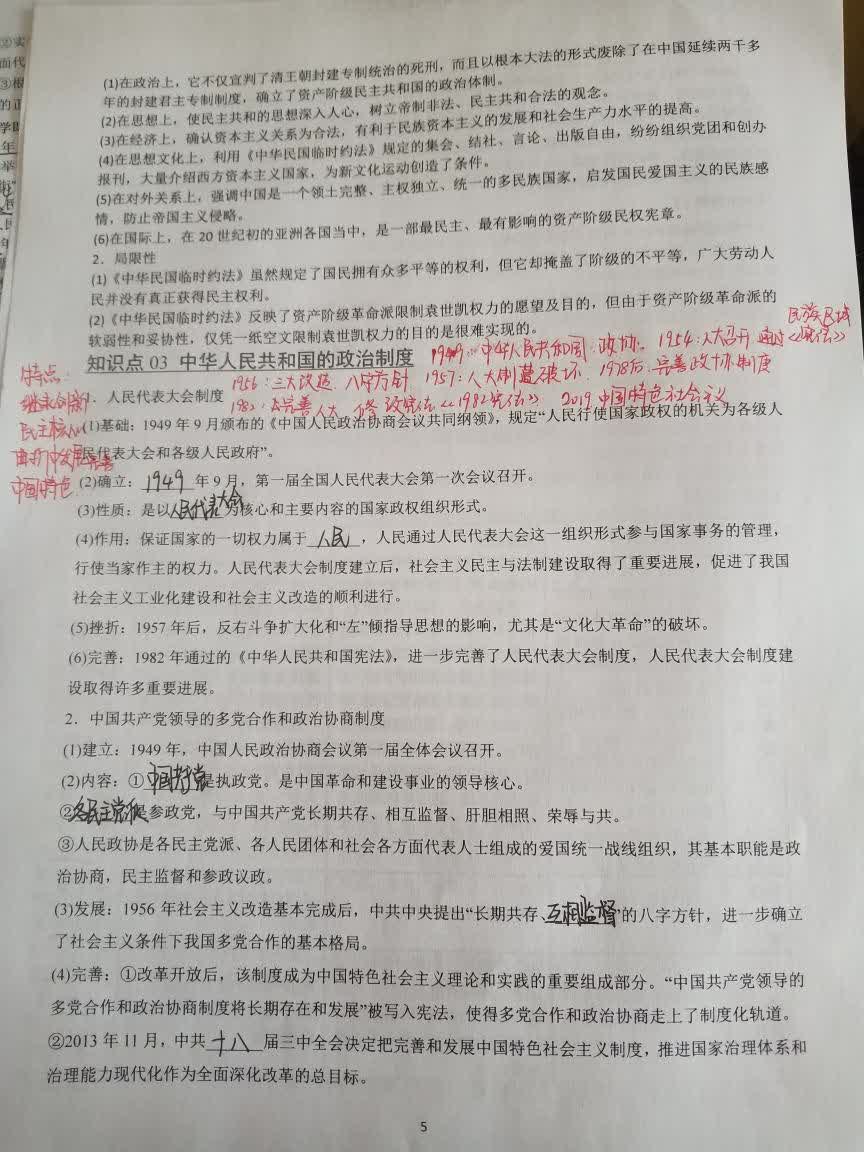 (1)在政治上，它不仅宣判了清王朝封建专制统治的死刑，而且以根本大法的形式废除了在中国延续两千多
年的封建君主专制制度，确立了资产阶级民主共和国的政治体制。
(2)在思想上，使民主共和的思想深入人心，树立帝制非法、民主共和合法的观念。
(3)在经济上，确认资本主义关系为合法，有利于民族资本主义的发展和社会生产力水平的提高。
(4)在思想文化上，利用《中华民国临时约法》规定的集会、结社、言论、出版自由，纷纷组织党团和创办
报刊，大量介绍西方资本主义国家，为新文化运动创造了条件。
(5)在对外关系上，强调中国是一个领土完整、主权独立、统一的多民族国家，启发国民爱国主义的民族感
情，防止帝国主义侵略。
(6)在国际上，在 20 世纪初的亚洲各国当中，是一部最民主、最有影响的资产阶级民权宪章。
2．局限性
(1)《中华民国临时约法》虽然规定了国民拥有众多平等的权利，但它却掩盖了阶级的不平等，广大劳动人
民并没有真正获得民主权利。
(2)《中华民国临时约法》反映了资产阶级革命派限制袁世凯权力的愿望及目的，但由于资产阶级革命派的
软弱性和妥协性，仅凭一纸空文限制袁世凯权力的目的是很难实现的。
民族区域
知识点 03 中华人民共和国的政治制度
1949：中华人民共和国 政协. 1954：人大召开 通过《宪法》
1956：三大改造 八字方针 1957：人大制遭破坏. 1978后：完善政协制度
1982：完善人大 修改宪法《1982宪法》 2019 中国特色社会主义
特点：
继承创新
民主核心
曲折中发展完善
中国特色
1．人民代表大会制度
(1)基础：1949 年 9 月颁布的《中国人民政治协商会议共同纲领》，规定“人民行使国家政权的机关为各级人
民代表大会和各级人民政府”。
(2)确立：1949 年 9 月，第一届全国人民代表大会第一次会议召开。
(3)性质：是以人民代表大会为核心和主要内容的国家政权组织形式。
(4)作用：保证国家的一切权力属于 人民 ，人民通过人民代表大会这一组织形式参与国家事务的管理，
行使当家作主的权力。人民代表大会制度建立后，社会主义民主与法制建设取得了重要进展，促进了我国
社会主义工业化建设和社会主义改造的顺利进行。
(5)挫折：1957 年后，反右斗争扩大化和“左”倾指导思想的影响，尤其是“文化大革命”的破坏。
(6)完善：1982 年通过的《中华人民共和国宪法》，进一步完善了人民代表大会制度，人民代表大会制度建
设取得许多重要进展。
2．中国共产党领导的多党合作和政治协商制度
(1)建立：1949 年，中国人民政治协商会议第一届全体会议召开。
(2)内容：①中国共产党是执政党。是中国革命和建设事业的领导核心。
②各民主党派是参政党，与中国共产党长期共存、相互监督、肝胆相照、荣辱与共。
③人民政协是各民主党派、各人民团体和社会各方面代表人士组成的爱国统一战线组织，其基本职能是政
治协商，民主监督和参政议政。
(3)发展：1956 年社会主义改造基本完成后，中共中央提出“长期共存、互相监督”的八字方针，进一步确立
了社会主义条件下我国多党合作的基本格局。
(4)完善：①改革开放后，该制度成为中国特色社会主义理论和实践的重要组成部分。“中国共产党领导的
多党合作和政治协商制度将长期存在和发展”被写入宪法，使得多党合作和政治协商走上了制度化轨道。
②2013 年 11 月，中共 十八 届三中全会决定把完善和发展中国特色社会主义制度，推进国家治理体系和
治理能力现代化作为全面深化改革的总目标。
5